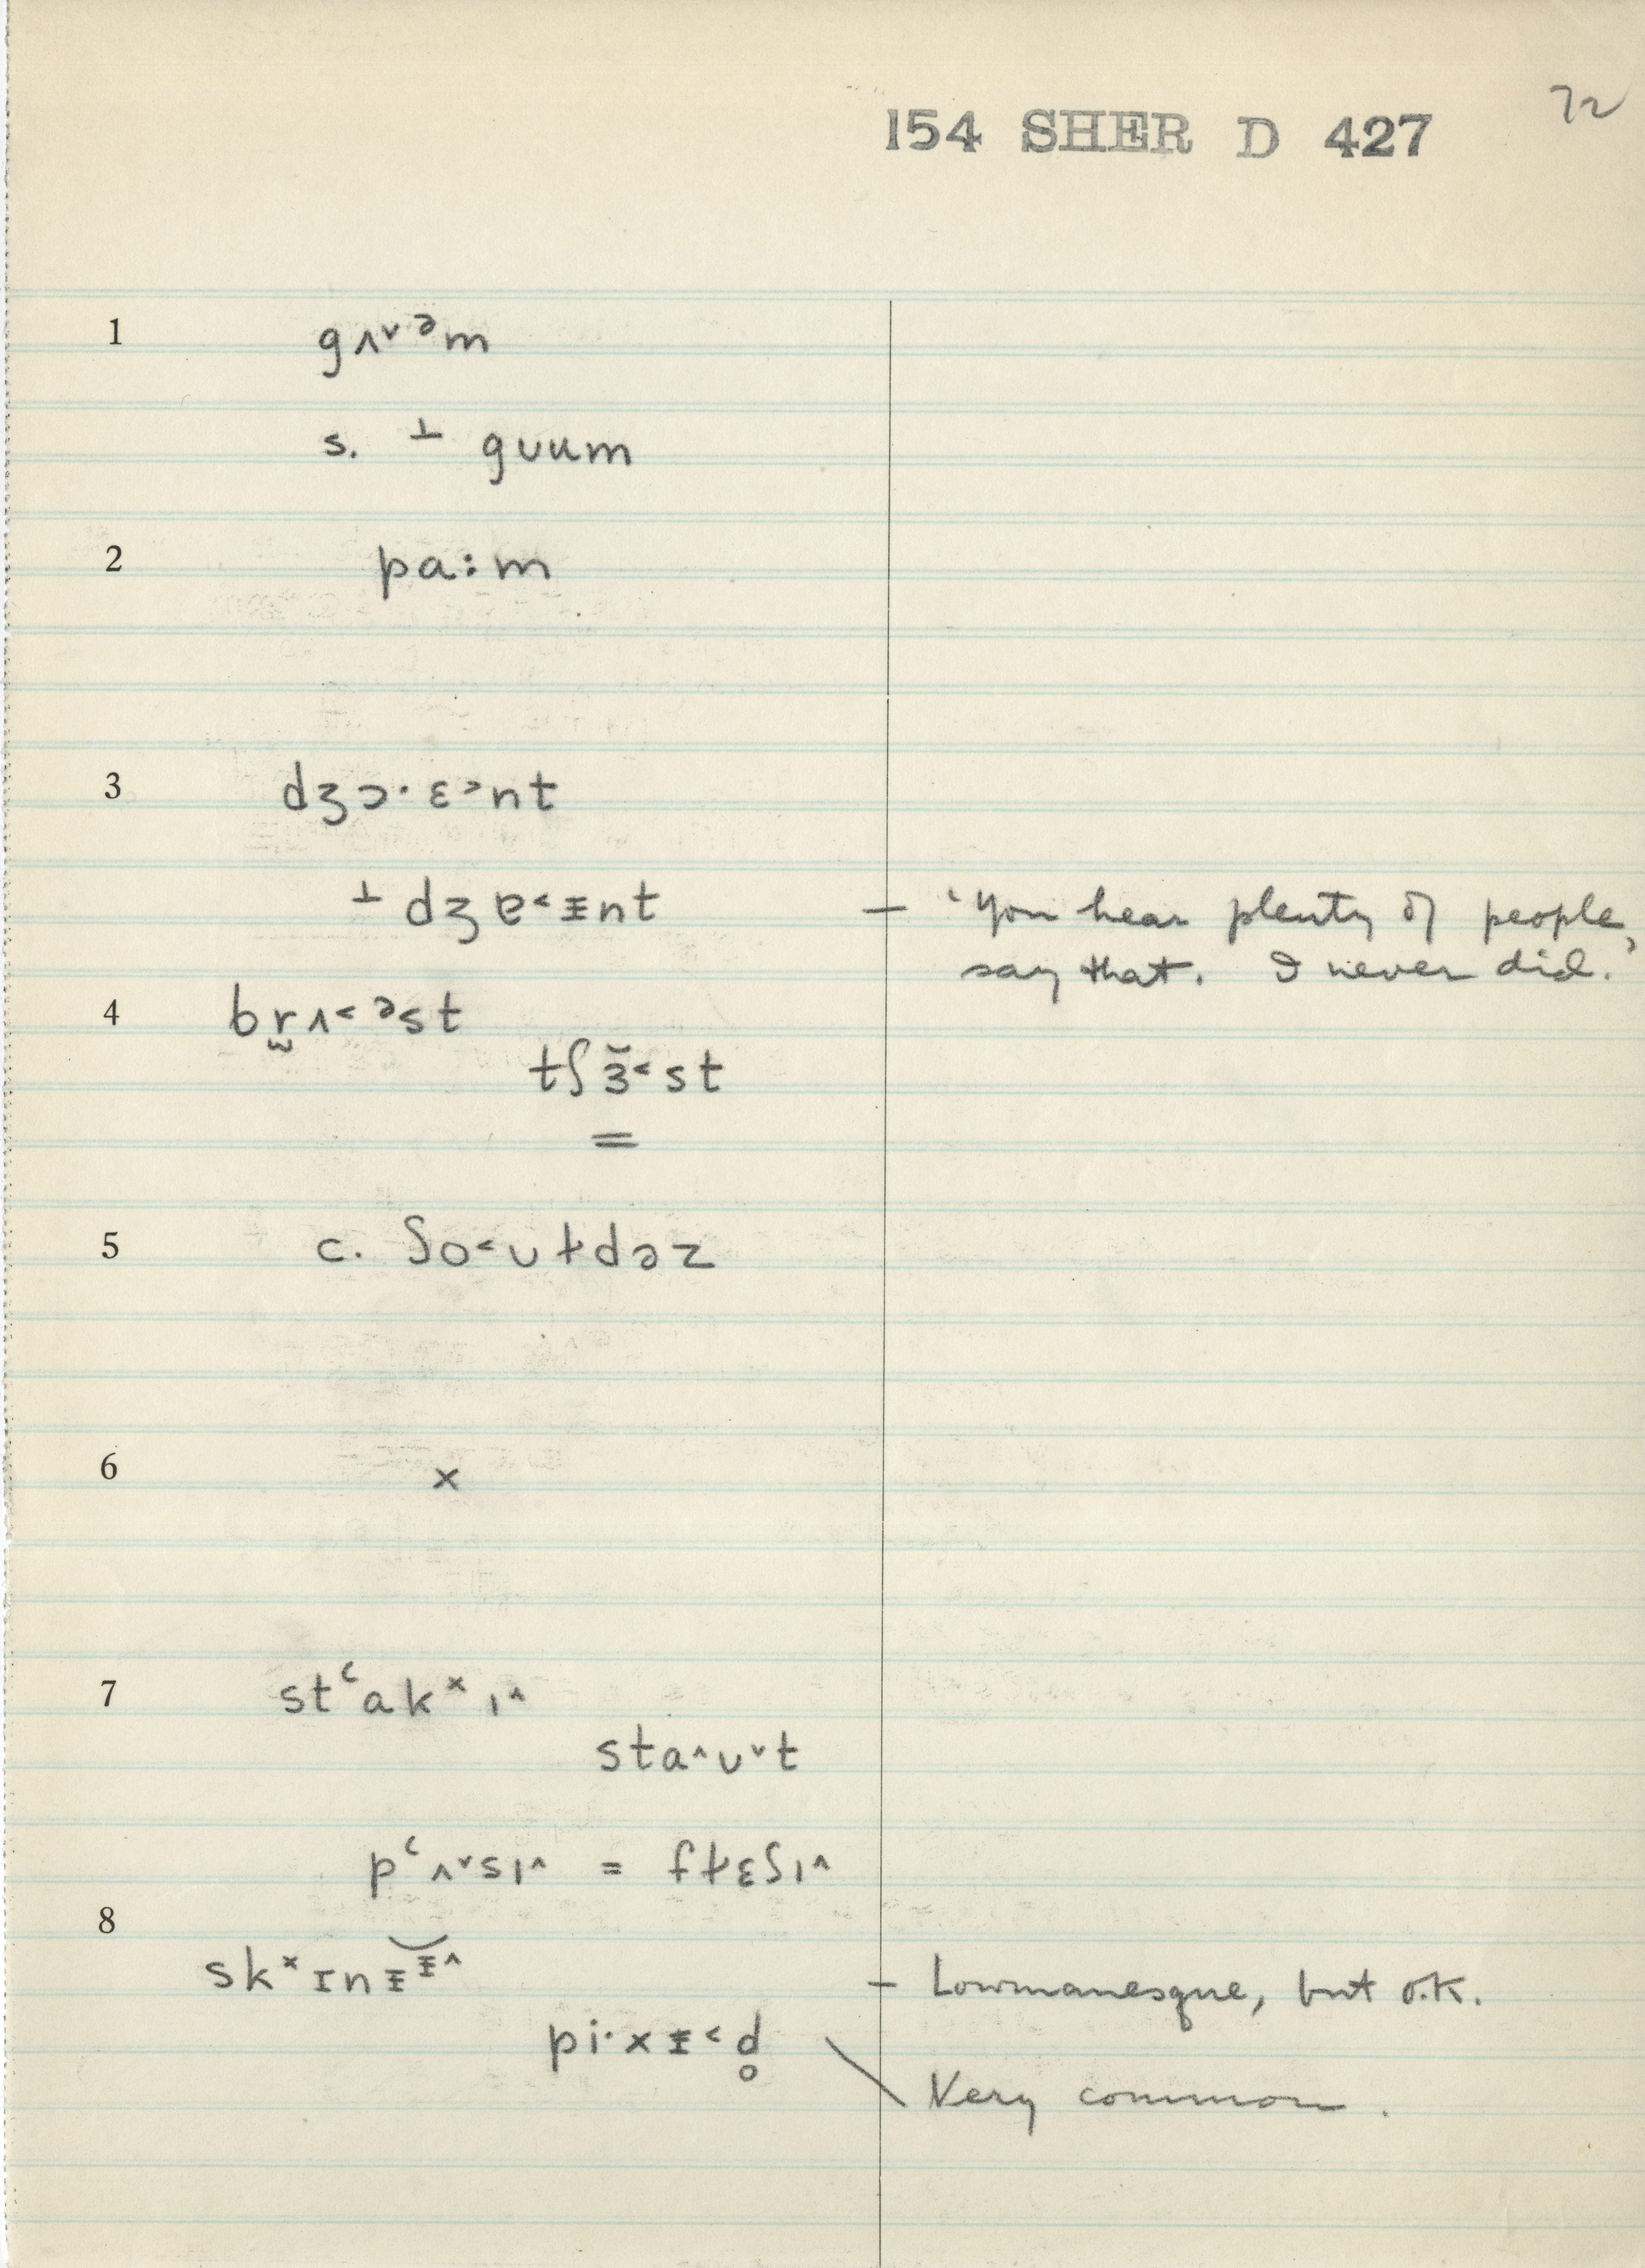 72
154 SHER D 427
1 gʌ˅ᵊm
s. ⊥ gʊum
2 pa:m
3 dʒɔ· ɛ˃nt
⊥ dʒɐ˂ᵻnt – 'You hear plenty of people
say that. I never did.'
4 br̬ʌ˂ ᵊst
tʃɜ̆˂st
=
5 c. ʃo˂ʊɫdəz
6 x
7 stʿakˣɪ˄
sta˄ʊ˅t
pʿʌ˅sɪ˄ = fɫɛʃɪ˄
8
skˣɪnᵻᵻ̆˄ – Lowmanesque, but o.k.
pi·xᵻ˂d̥
Very common.